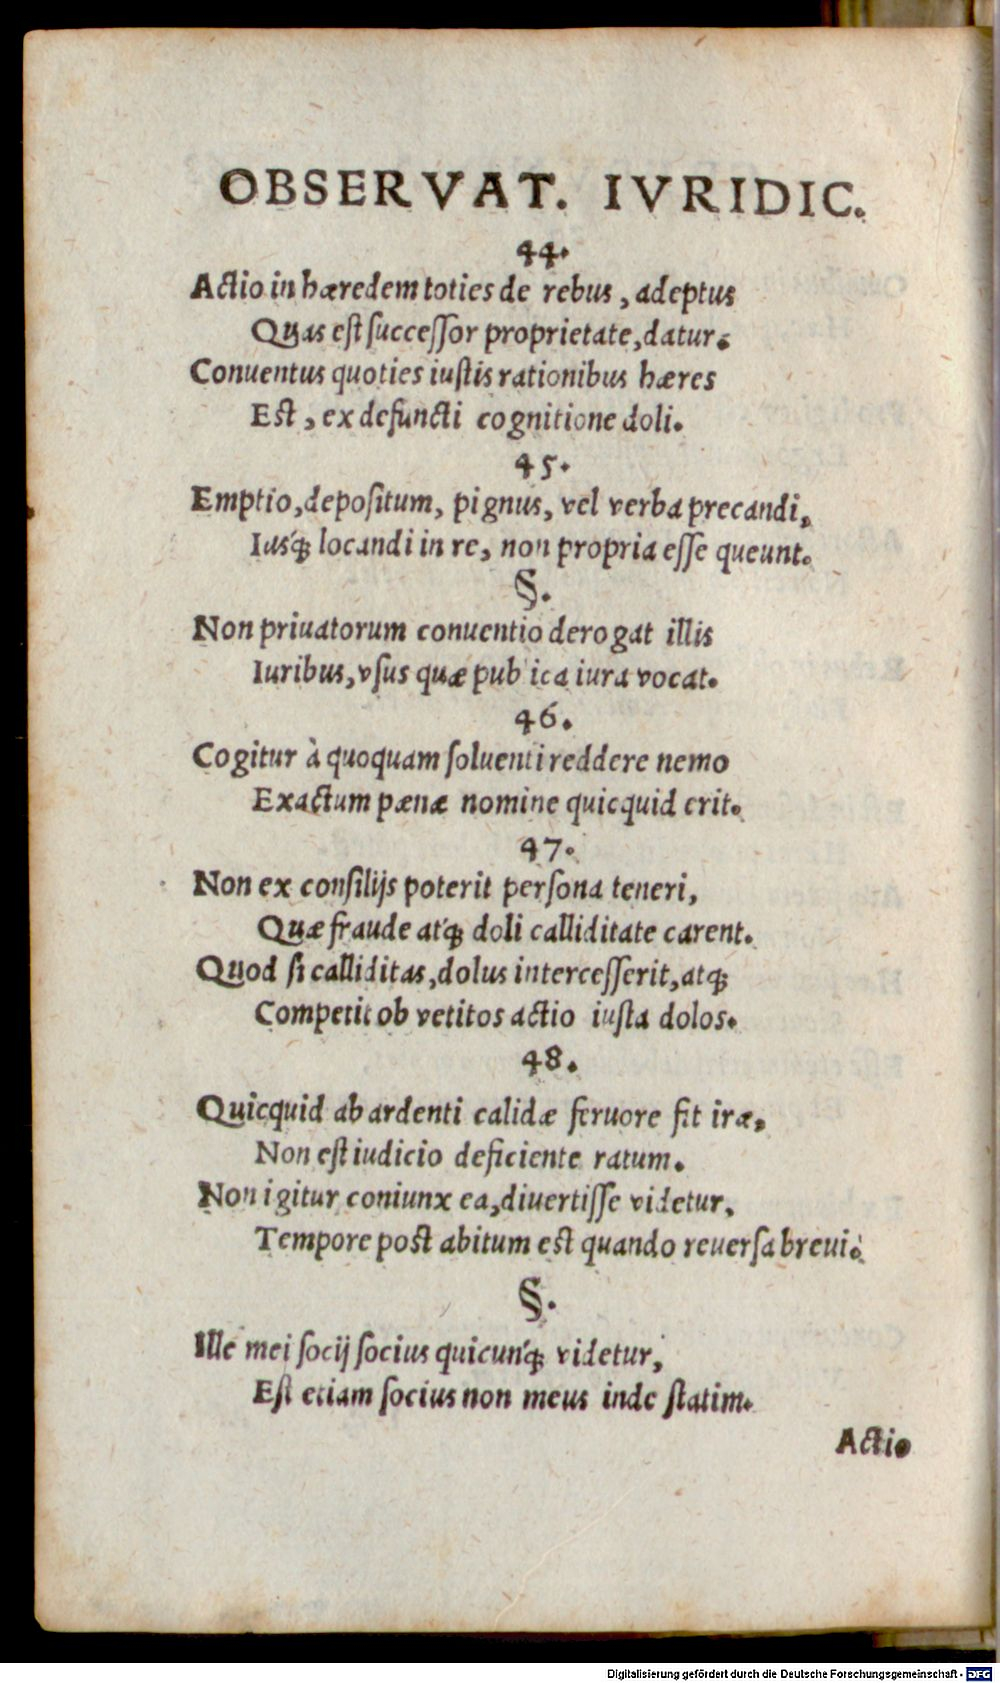 OBSERVAT. IVRIDIC.
44.
Actio in hæredem toties de rebus, adeptus
Quas est successor proprietate, datur.
Conuentus quoties iustis rationibus hæres
Est, ex defuncti cognitione doli.
45.
Emptio, depositum, pignus, vel verba precandi,
Iusq́; locandi in re, non propria esse queunt.
§.
Non priuatorum conuentio derogat illis
Iuribus, vsus quæ pub ica iura vocat.
46.
Cogitur à quoquam soluenti reddere nemo
Exactum pænæ nomine quicquid erit.
47.
Non ex consilijs poterit persona teneri,
Quæ fraude atq́; doli calliditate carent.
Quod si calliditas, dolus intercesserit, atq́;
Competit ob vetitos actio iusta dolos.
48.
Quicquid ab ardenti calidæ feruore fit iræ,
Non est iudicio deficiente ratum.
Non igitur coniunx ea, diuertisse videtur,
Tempore post abitum est quando reuersa breui.
§.
Ille mei socij socius quicunq́; videtur,
Est etiam socius non meus inde statim.
Actio
Digitalisierung gefördert durch die Deutsche Forschungsgemeinschaft - DFG